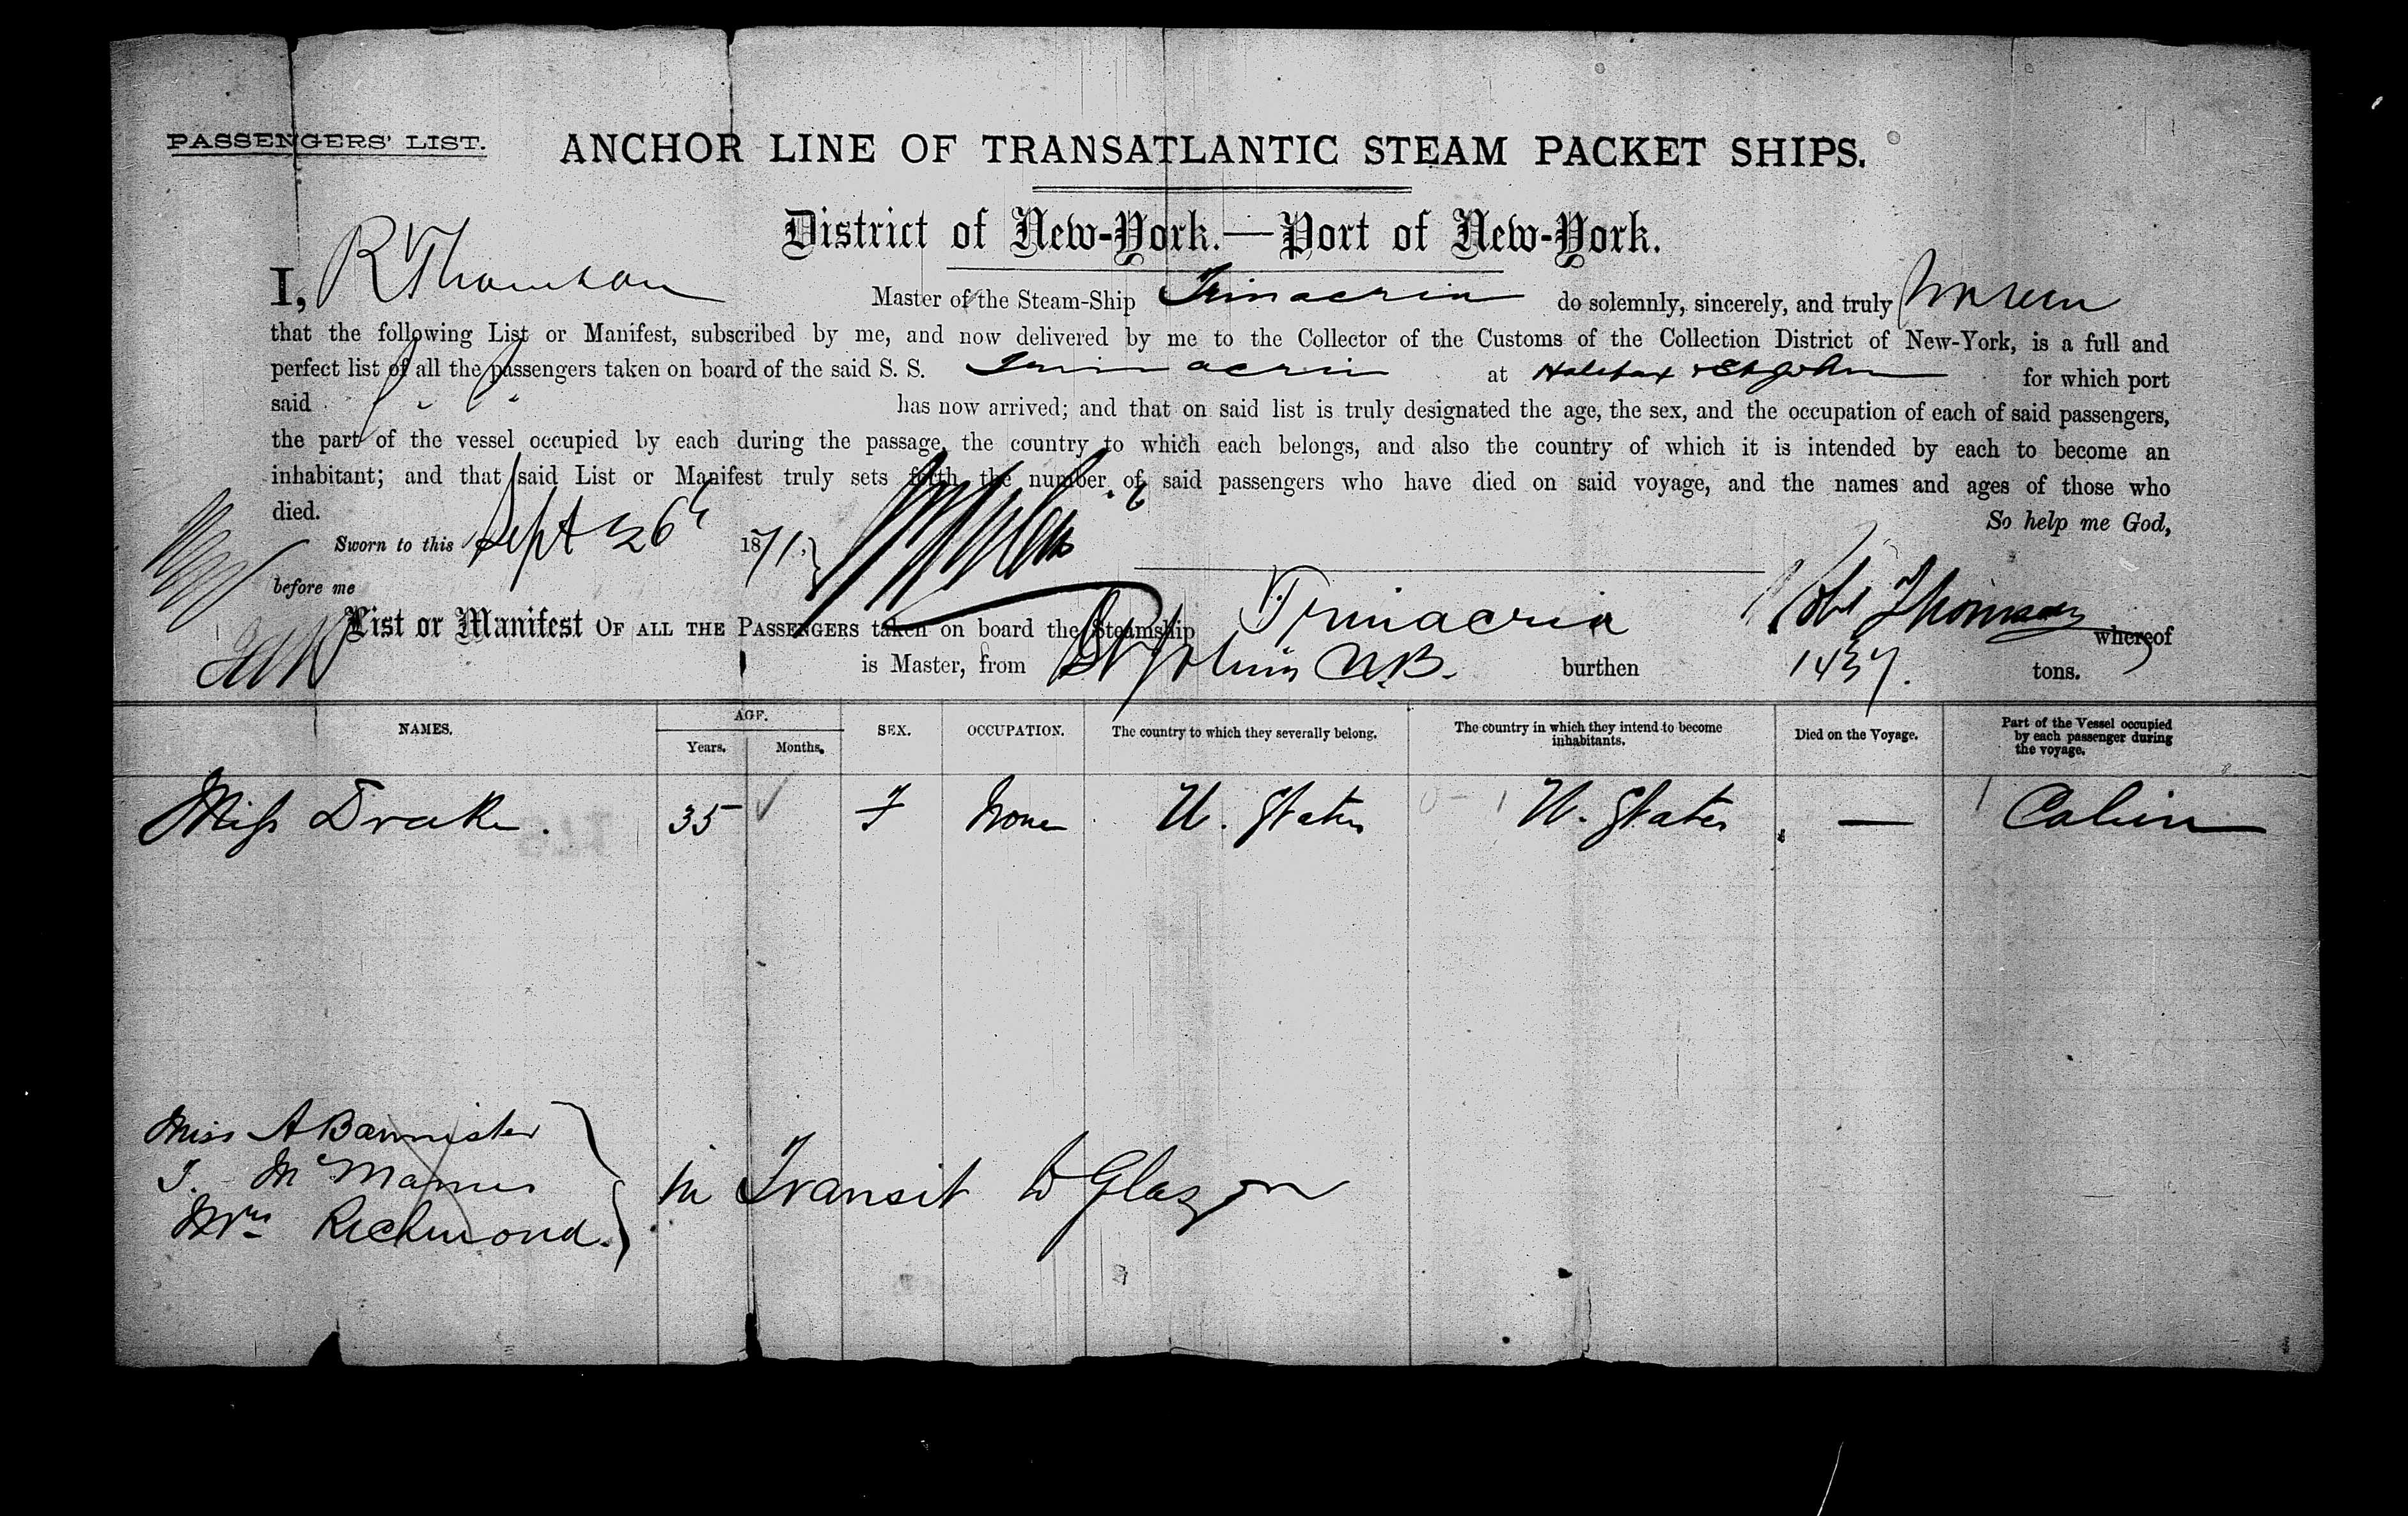 PASSENGERS' LIST.
ANCHOR LINE OF TRANSATLANTIC STEAM PACKET SHIPS.
District of New-York.—Port of New-York.
I, R Thomson Master of the Steam-Ship Trinacria do solemnly, sincerely, and truly
that the following List or Manifest, subscribed by me, and now delivered by me to the Collector of the Customs of the Collection District of New-York, is a full and
perfect list of all the passengers taken on board of the said S. S. Trinacria at Halifax & St John for which port
said has now arrived; and that on said list is truly designated the age, the sex, and the occupation of each of said passengers,
the part of the vessel occupied by each during the passage, the country to which each belongs, and also the country of which it is intended by each to become an
inhabitant; and that said List or Manifest truly sets forth the number of said passengers who have died on said voyage, and the names and ages of those who
died. So help me God,
Sworn to this Sept 26th 1871,
before me
List or Manifest OF ALL THE PASSENGERS taken on board the Steamship Trinacria Robt Thomson whereof
is Master, from St Johns N.B. burthen 1437. tons.
NAMES. AGE. Years. Months. SEX. OCCUPATION. The country to which they severally belong. The country in which they intend to become inhabitants. Died on the Voyage. Part of the Vessel occupied by each passenger during the voyage.
Miss Drake. 35 ✓ F None U. States U. States — Cabin
Miss A Bannister
J. McManus
Mrs Richmond.
in Transit to Glasgow